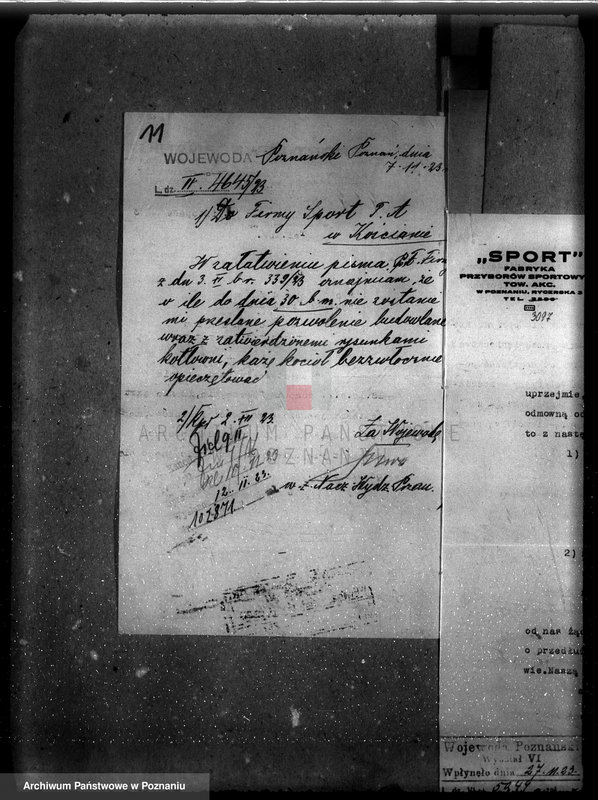 11
WOJEWODA Poznański Poznań, dnia
7.11.23.
L. dz. VI. 4645/23
1/ Do Firmy Sport T. A
w Kościanie
W załatwieniu pisma
z dn 3. II b r. 339/23 oznajmiam, że
w ile do dnia 30 b. m. nie zostanie
mi przesłane pozwolenie budowlane
wraz z zatwierdzonemi rysunkami
kotłowni, każę kocioł bezzwłocznie
opieczętować
2/ 2. XII 23
Za Wojewodę
12. II. 23.
w z. Nacz Wydz Przem.
107871
ARCHIWUM PAŃSTWOWE
W POZNANIU
„SPORT"
FABRYKA
PRZYBORÓW SPORTOWY
TOW. AKC.
W POZNANIU, RYCERSKA 3
TEL.
3097
uprzejmie,
odmowną od
to z nastę
1)
2)
od nas żąd
o przedłuż
wie. Naszą
Wojewoda Poznański
Wydział VI
Wpłynęło dnia 27.11.23.
Archiwum Państwowe w Poznaniu